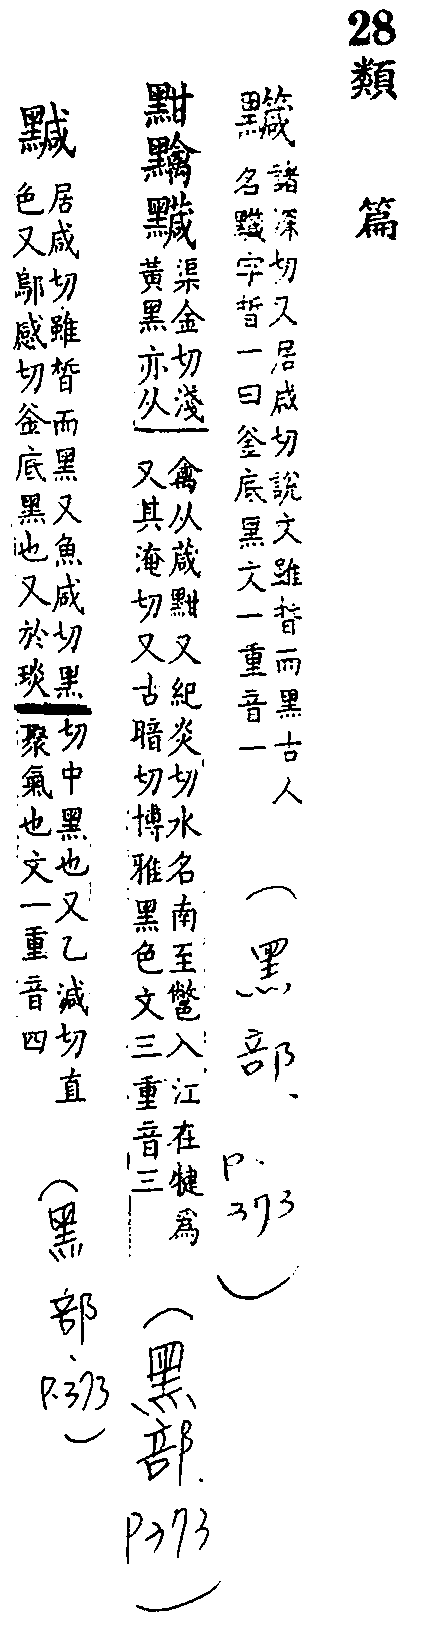 28類篇
黬 諸深切又居咸切說文雖晳而黑古人
名黬字晳一曰釜底黑文一重音一
（黑部．P.373）
黚黵黬 渠金切淺
黃黑亦从
禽从葴黚又紀炎切水名南至鄨入江在犍爲
又其淹切又古暗切博雅黑色文三重音三
（黑部．P373）
黬 居咸切雖晳而黑又魚咸切黑
色又鄔感切釜底黑也又於琰
切中黑也又乙減切直
聚氣也文一重音四
（黑部．P.373）